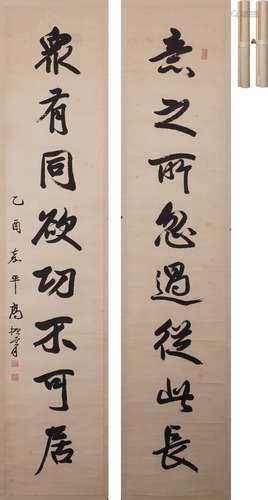 意之所忽過從此長
眾有同欲功不可居
乙酉春平高振霄